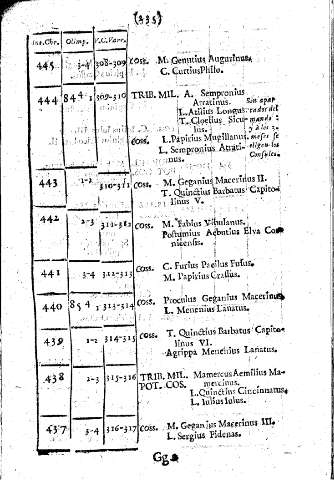 (335)
Ant.Chr. Olimp. V.C.Varr.
445 3-4 308-309 coss. M. Genutius Augurinus.
C. Curtius Philo.
444 84 4 1 309-310 TRIB. MIL. A. Sempronius
Atratinus.
L. Atilius Longus
T. Cloelius Sicu-
lus.
Sin apar
tador del
mando:
y a los 3.
meses se
eligen los
Consules.
coss. L. Papirius Mugillanus.
L. Sempronius Atrati-
nus.
443 1-2 310-311 coss. M. Geganius Macerinus II.
T. Quinctius Barbatus Capito-
linus V.
442 2-3 311-312 coss. M. Fabius Vibulanus.
Postumius Aebutius Elva Cor-
nicensis.
441 3-4 312-313 coss. C. Furius Pacilus Fusus.
M. Papirius Crassus.
440 85 4 1 313-314 coss. Proculus Geganius Macerinus.
L. Menenius Lanatus.
439 1-2 314-315 coss. T. Quinctius Barbatus Capito-
linus VI.
Agrippa Menenius Lanatus.
438 2-3 315-316 TRIB. MIL. Mamercus Aemilius Ma-
POT. COS. mercinus.
L. Quinctius Cincinnatus.
L. Iulius Iulus.
437 3-4 316-317 coss. M. Geganius Macerinus III.
L. Sergius Fidenas.
Gg